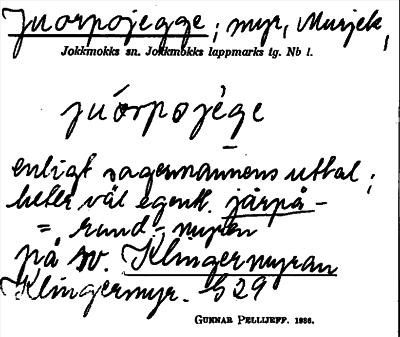 Juorpojegge; myr, Murjek,
Jokkmokks sn. Jokkmokks lappmarks tg. Nb l.
júorpojège
enligt sagesmannens uttal;
heller väl egentl. järpå-
= rund-myren
på sv. Klingermyran
Klingermyr. G 29
GUNNAR PELLIJEFF. 1936.